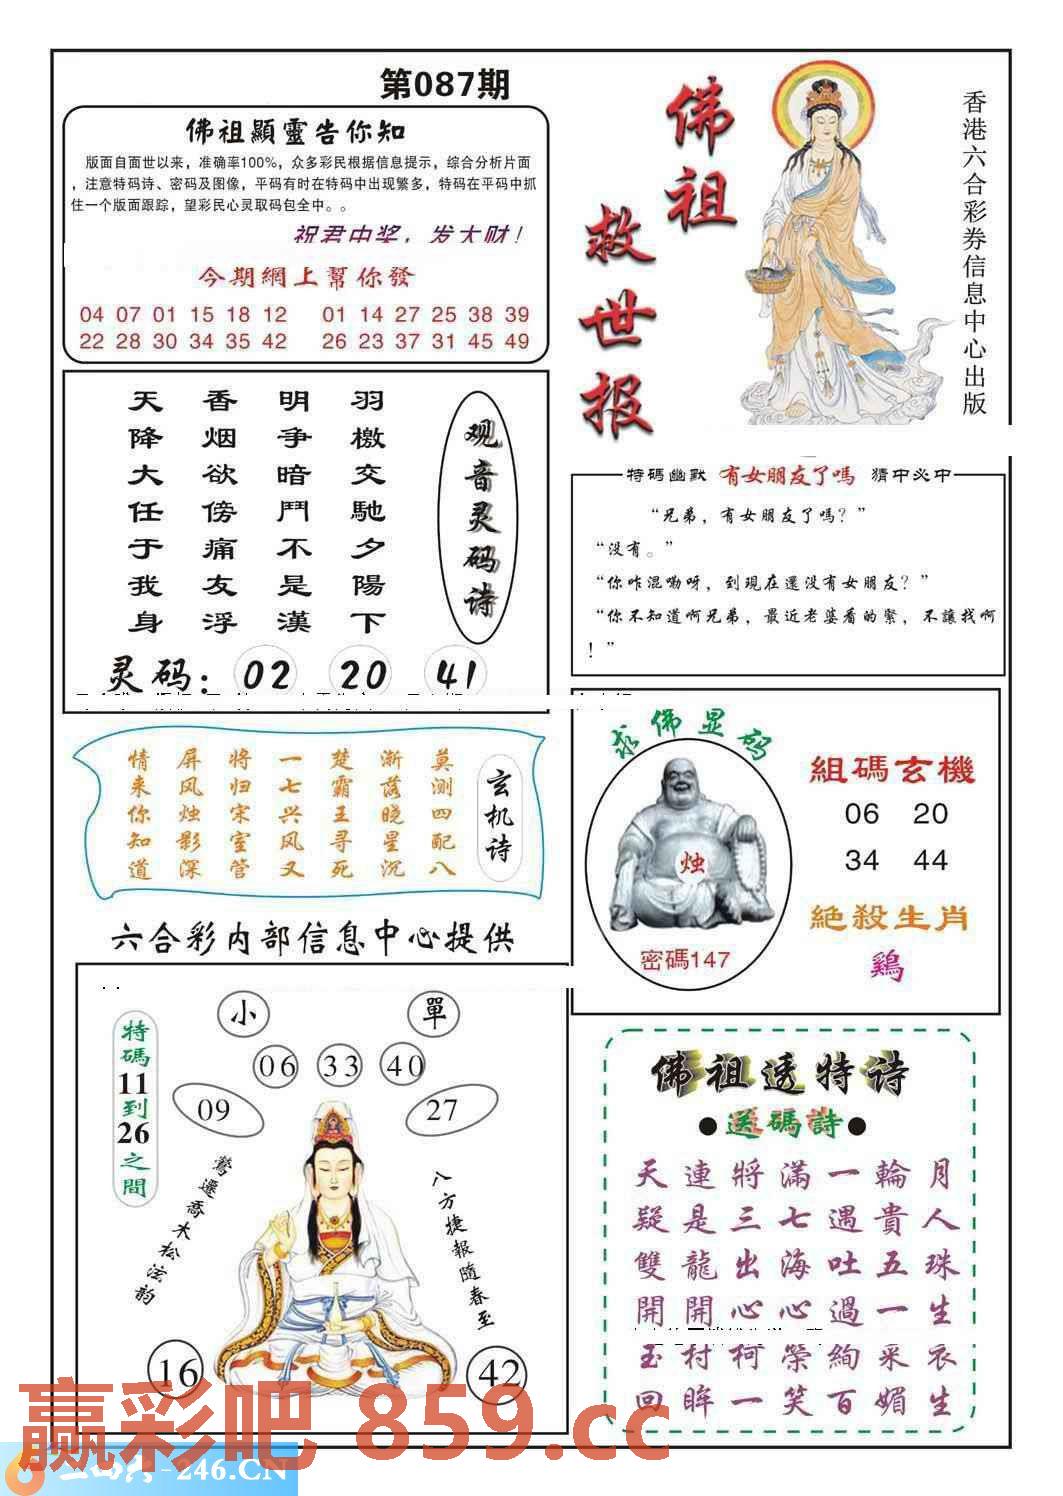 第087期
佛祖顯靈告你知
版面自面世以来，准确率100%，众多彩民根据信息提示，综合分析片面
，注意特码诗、密码及图像，平码有时在特码中出现繁多，特码在平码中抓
住一个版面跟踪，望彩民心灵取码包全中。。
祝君中奖，发大财！
今期網上幫你發
04 07 01 15 18 12 01 14 27 25 38 39
22 28 30 34 35 42 26 23 37 31 45 49
佛祖
救世报
香港六合彩券信息中心出版
观音灵码诗
羽檄交馳夕陽下
明争暗鬥不是漢
香烟欲傍痛友浮
天降大任于我身
灵码：02 20 41
特碼幽默 有女朋友了嗎 猜中必中
“兄弟，有女朋友了嗎？”
“没有。”
“你咋混嘞呀，到現在還没有女朋友？”
“你不知道啊兄弟，最近老婆看的緊，不讓找啊
！”
玄机诗
莫测四配八
渐落晓星沉
楚霸王寻死
一七兴风又
将归宋室管
屏风烛影深
情来你知道
求佛显码
烛
密碼147
組碼玄機
06 20
34 44
絕殺生肖
鷄
六合彩内部信息中心提供
特碼11到26之間
小 單
06 33 40
09 27
鶯遷喬木松泫韵
八方捷報隨春至
16 42
佛祖透特诗
●送碼詩●
天連將滿一輪月
疑是三七遇貴人
雙龍出海吐五珠
開開心心過一生
玉村柯榮絢采衣
回眸一笑百媚生
赢彩吧 859.cc
-246.CN